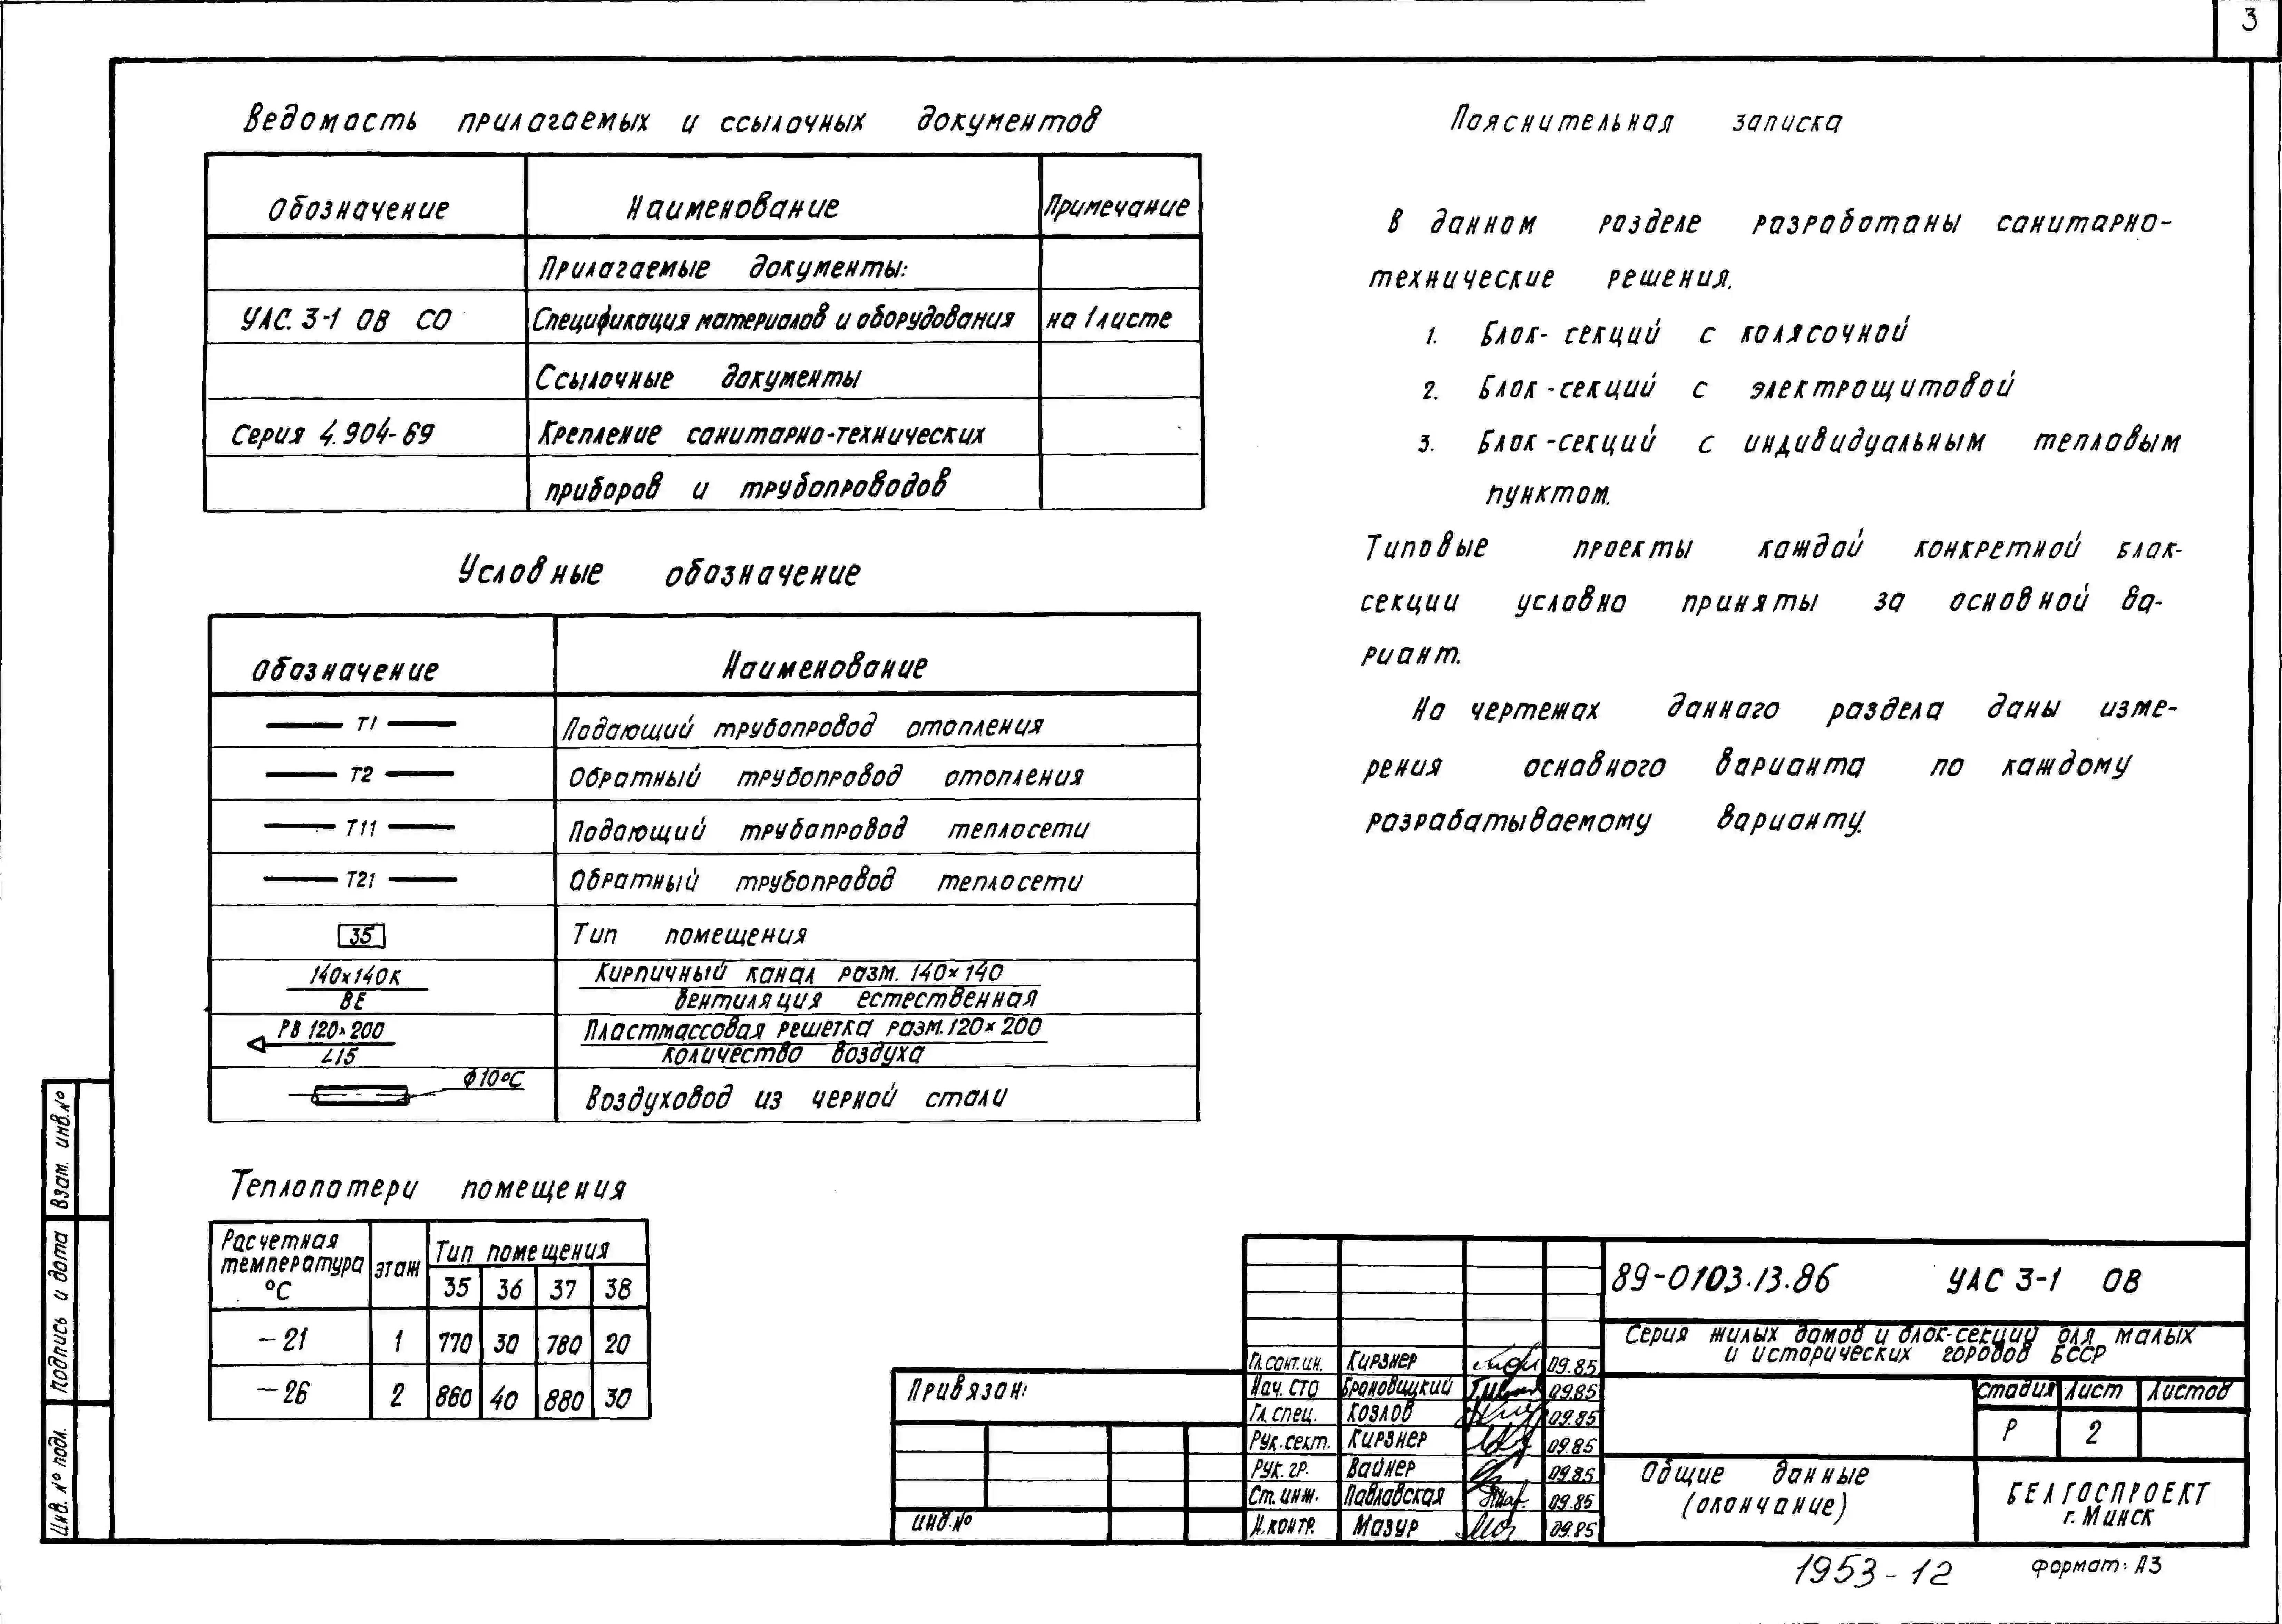 3
Ведомость прилагаемых и ссылочных документов
Обозначение Наименование Примечание
Прилагаемые документы:
УАС. 3-1 ОВ СО Спецификация материалов и оборудования на 1 листе
Ссылочные документы
Серия 4.904-69 Крепление санитарно-технических
приборов и трубопроводов
Условные обозначение
Обозначение Наименование
Т1 Подающий трубопровод отопления
Т2 Обратный трубопровод отопления
Т11 Подающий трубопровод теплосети
Т21 Обратный трубопровод теплосети
35 Тип помещения
140х140К Кирпичный канал разм. 140х140
ВЕ вентиляция естественная
РВ 120х200 Пластмассовая решетка разм. 120х200
L15 количество воздуха
ф10°С Воздуховод из черной стали
Теплопотери помещения
Расчетная температура °С этаж Тип помещения
35 36 37 38
-21 1 770 30 780 20
-26 2 860 40 880 30
Пояснительная записка
В данном разделе разработаны санитарно-
технические решения.
1. Блок-секций с колясочной
2. Блок-секций с электрощитовой
3. Блок-секций с индивидуальным тепловым
пунктом.
Типовые проекты каждой конкретной блок-
секции условно приняты за основной ва-
риант.
На чертежах данного раздела даны изме-
рения основного варианта по каждому
разрабатываемому варианту.
Взам. инв.№
Подпись и дата
Инв. № подл.
Привязан:
инв.№
Гл.сант.ин. Кирзнер 09.85
Нач. СТО Брановицкий 09.85
Гл. спец. Козлов 09.85
Рук.сект. Кирзнер 09.85
Рук. гр. Вайнер 09.85
Ст. инж. Павловская 09.85
Н.контр. Мазур 09.85
89-0103.13.86 УАС 3-1 ОВ
Серия жилых домов и блок-секций для малых
и исторических городов БССР
Стадия Лист Листов
Р 2
Общие данные
(окончание)
БЕЛГОСПРОЕКТ
г. Минск
1953-12
формат: А3